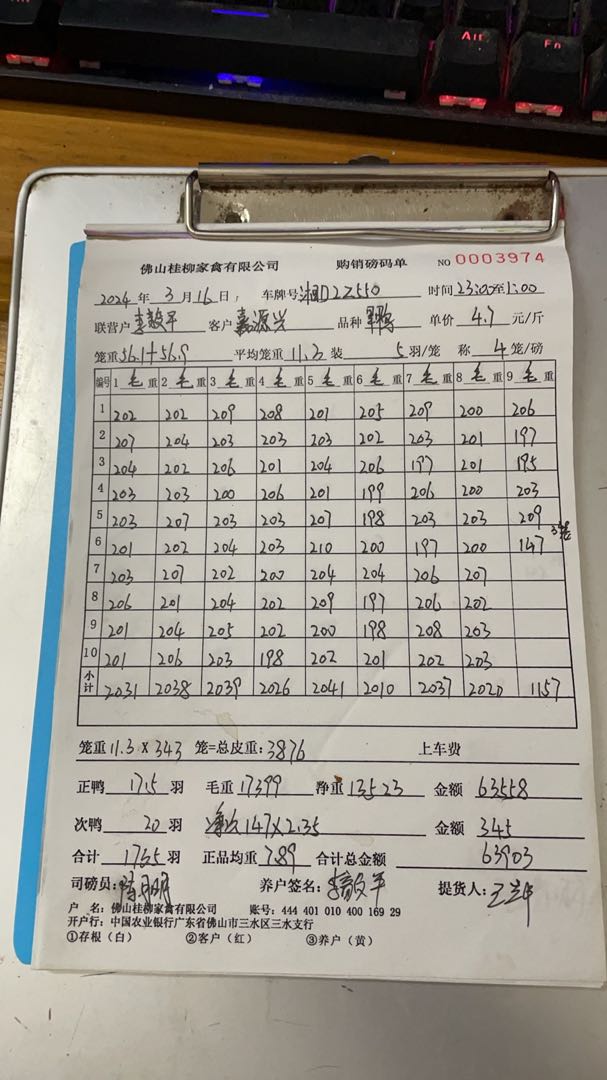 All
Fn
佛山桂柳家禽有限公司 购销磅码单 NO 0003974
2024 年 3 月 16 日 车牌号 湘D2Z550 时间 23:00至1:00
联营户 李毅平 客户 嘉源兴 品种 单价 4.7 元/斤
笼重 56.1+56.9 平均笼重 11.3 装 5 羽/笼 称 4 笼/磅
编号 1 毛 重 2 毛 重 3 毛 重 4 毛 重 5 毛 重 6 毛 重 7 毛 重 8 毛 重 9 毛 重
1 202 202 209 208 201 205 209 200 206
2 207 204 203 203 203 202 203 201 197
3 204 202 206 201 204 206 197 201 195
4 203 203 200 206 201 199 206 200 203
5 203 207 203 203 207 198 203 203 209
6 201 202 204 203 210 200 197 200 147 3笼
7 203 207 202 200 204 204 206 207
8 206 201 204 202 209 197 206 202
9 201 204 205 202 200 198 208 203
10 201 206 203 198 202 201 202 203
小计 2031 2038 2039 2026 2041 2010 2037 2020 1157
笼重 11.3 X 343 笼=总皮重: 3876 上车费
正鸭 1715 羽 毛重 17399 净重 13523 金额 63558
次鸭 20 羽 147X2.35 金额 345
合计 1735 羽 正品均重 7.89 合计总金额 63903
司磅员: 养户签名: 李毅平 提货人:
户 名: 佛山桂柳家禽有限公司 账号: 444 401 010 400 169 29
开户行: 中国农业银行广东省佛山市三水区三水支行
①存根（白） ②客户（红） ③养户（黄）